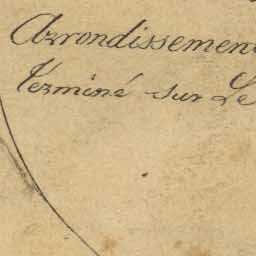 Arrondissement
Terminé sur Le